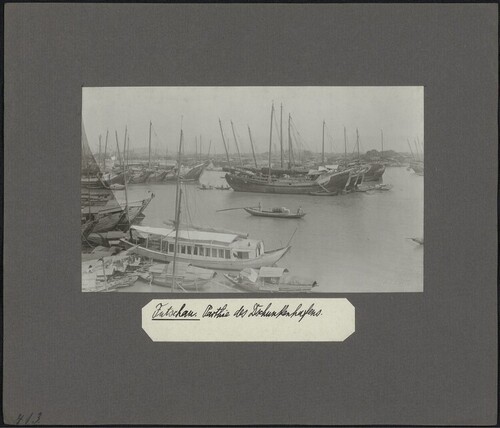 Futschau. Parthie des Dschunkenhafens.
413